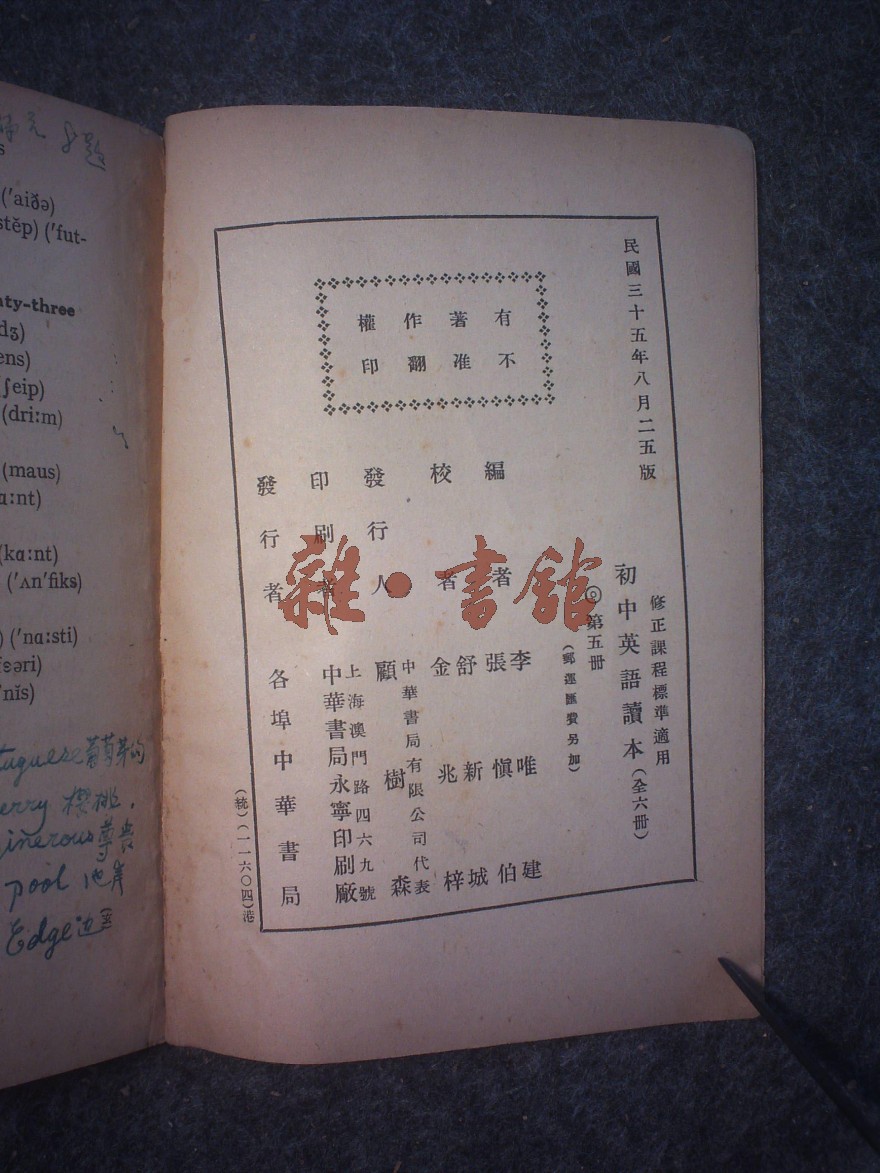 題
s
('aiðə)
stĕp) ('fut-
nty-three
dʒ)
ens)
ʃeip)
(driːm)
(maus)
ɑːnt)
(kɑːnt)
('ʌn'fiks)
('nɑːsti)
ɛəri)
'nĭs)
tuguese葡萄牙的
erry 櫻桃.
pool 池
Edge边
民國三十五年八月二五版
有著作權
不准翻印
修正課程標準適用
初中英語讀本(全六冊)
第五冊
(郵運匯費另加)
編者
李唯建
張慎伯
校者
舒新城
金兆梓
發行人
中華書局有限公司代表
顧樹森
印刷者
上海澳門路四六九號
中華書局永寧印刷廠
發行者
各埠中華書局
(統)(一一六〇四)港
雜·書館